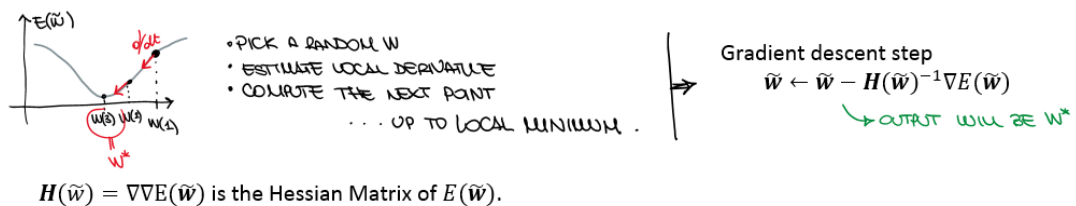 E(w̃)
d/dt
• PICK A RANDOM W
• ESTIMATE LOCAL DERIVATIVE
• COMPUTE THE NEXT POINT
... UP TO LOCAL MINIMUM.
W(3) W(2) W(1)
W*
Gradient descent step
w̃ ← w̃ − H(w̃)⁻¹∇E(w̃)
OUTPUT WILL BE W*
H(w̃) = ∇∇E(w̃) is the Hessian Matrix of E(w̃).